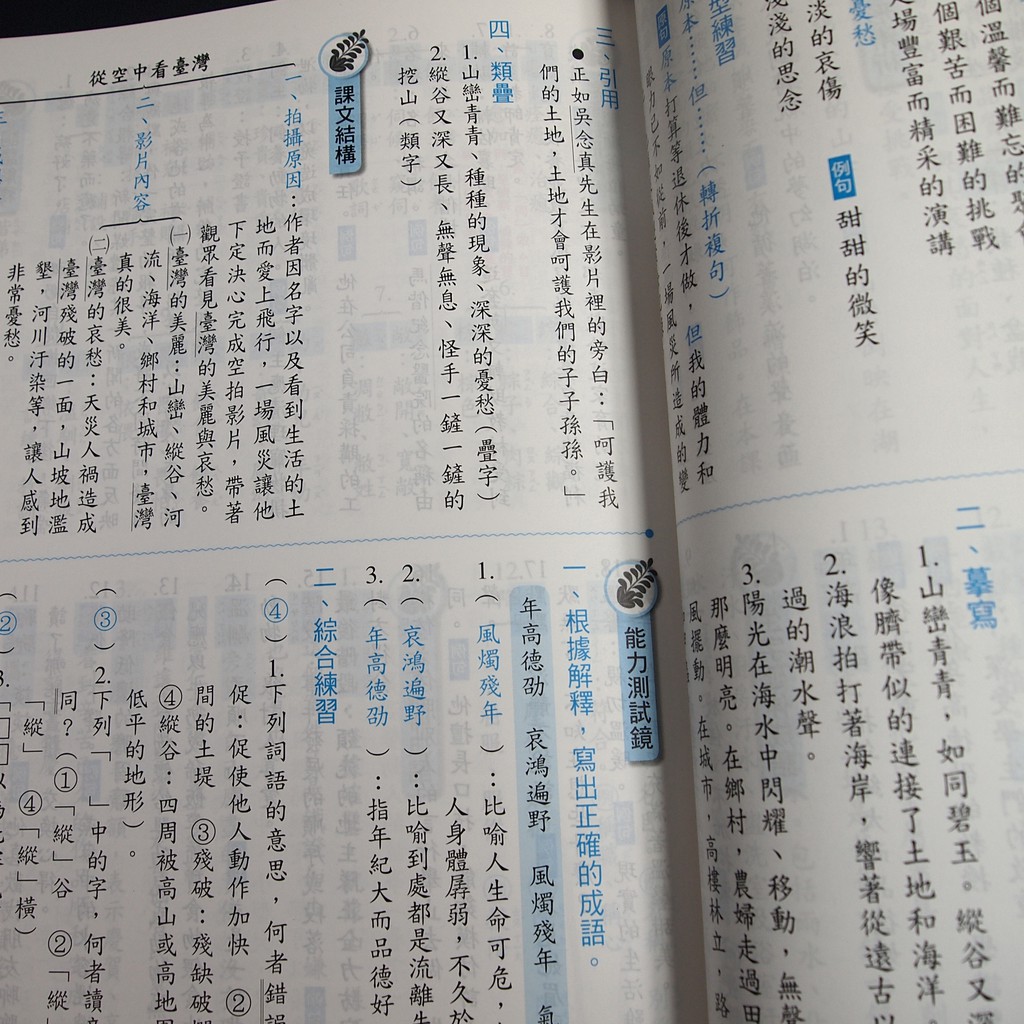 個溫馨而難忘的
個艱苦而困難的挑戰
場豐富而精采的演講
憂愁
淡的哀傷
淺淺的思念
例句 甜甜的微笑
型練習
原本……但……(轉折複句)
原本打算等退休後才做，但我的體力和
眼力已不如從前，一場風災所造成的變
二、摹寫
1.山巒青青，如同碧玉。縱谷又深
像臍帶似的連接了土地和海洋
2.海浪拍打著海岸，響著從遠古以
過的潮水聲。
3.陽光在海水中閃耀、移動，無聲
那麼明亮。在鄉村，農婦走過田
風擺動。在城市，高樓林立，路
三、引用
●正如吳念真先生在影片裡的旁白：「呵護我
們的土地，土地才會呵護我們的子子孫孫。」
四、類疊
1.山巒青青、種種的現象、深深的憂愁(疊字)
2.縱谷又深又長、無聲無息、怪手一鏟一鏟的
挖山(類字)
課文結構
從空中看臺灣
一、拍攝原因：作者因名字以及看到生活的土
地而愛上飛行，一場風災讓他
下定決心完成空拍影片，帶著
觀眾看見臺灣的美麗與哀愁。
二、影片內容
㈠臺灣的美麗：山巒、縱谷、河
流、海洋、鄉村和城市，臺灣
真的很美。
㈡臺灣的哀愁：天災人禍造成
臺灣殘破的一面，山坡地濫
墾，河川汙染等，讓人感到
非常憂愁。
能力測試鏡
一、根據解釋，寫出正確的成語。
年高德劭 哀鴻遍野 風燭殘年 氣
1.(風燭殘年)：比喻人生命可危，
人身體孱弱，不久於
2.(哀鴻遍野)：比喻到處都是流離
3.(年高德劭)：指年紀大而品德好
二、綜合練習
(④)1.下列詞語的意思，何者錯誤
促：促使他人動作加快 ②
間的土堤 ③殘破：殘缺破
④縱谷：四周被高山或高地
低平的地形)。
(③)2.下列「 」中的字，何者讀音
同？(①「縱」谷 ②「縱
「縱」 ④「縱」橫)
(②)3.